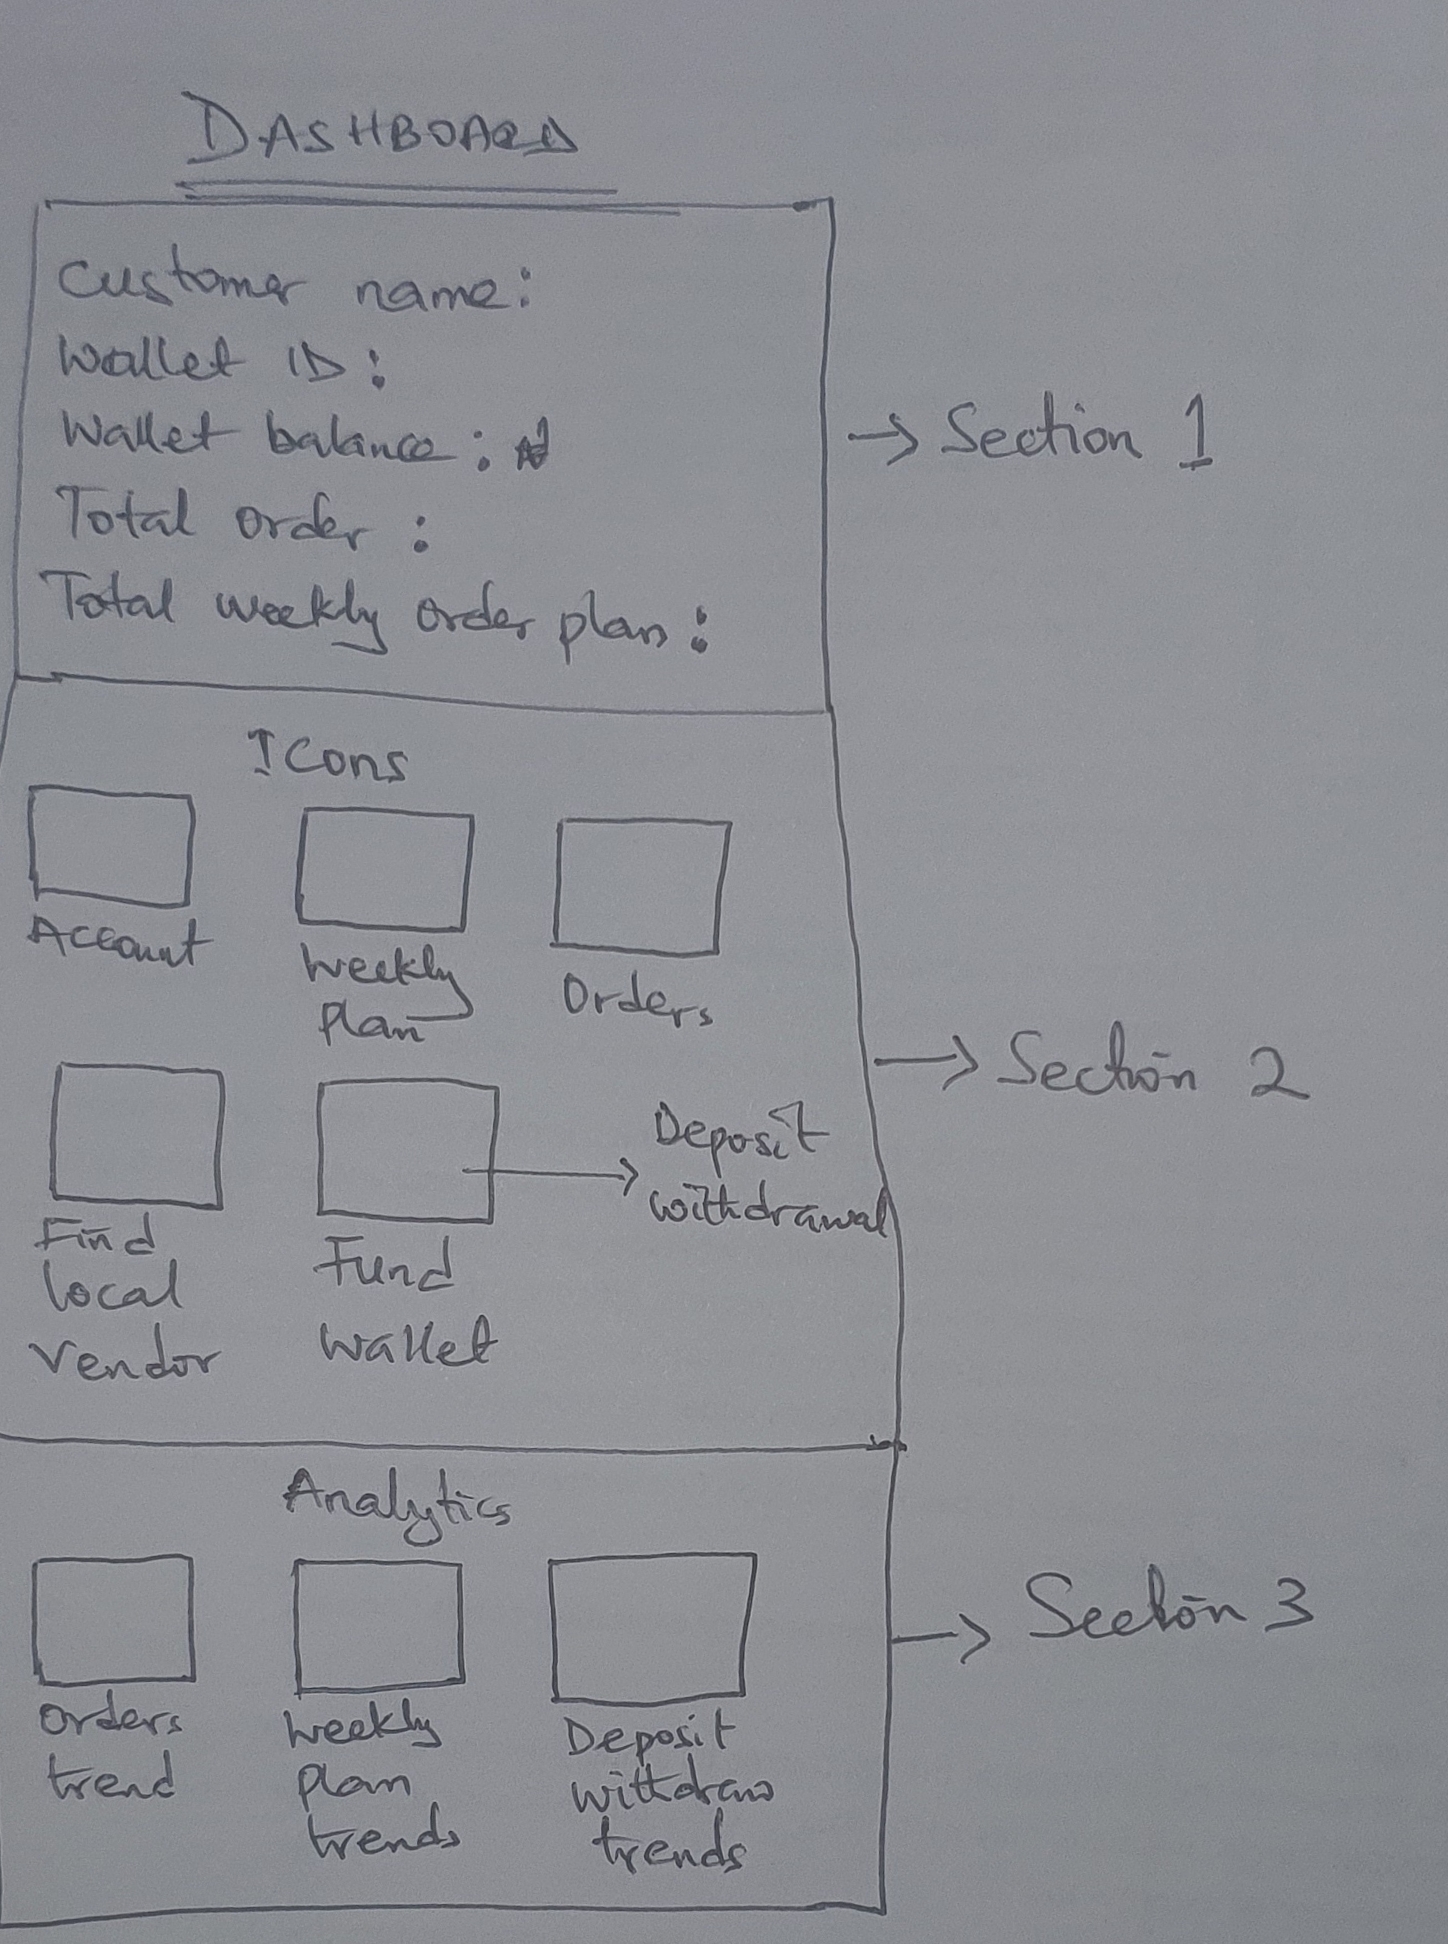 DASHBOARD
Customer name:
Wallet ID:
Wallet balance: ₦
Total order:
Total weekly order plan:
→ Section 1
Icons
Account
Weekly
plan
Orders
Find
local
vendor
Fund
wallet
→ Deposit
withdrawal
→ Section 2
Analytics
Orders
trend
Weekly
plan
trends
Deposit
withdraw
trends
→ Section 3